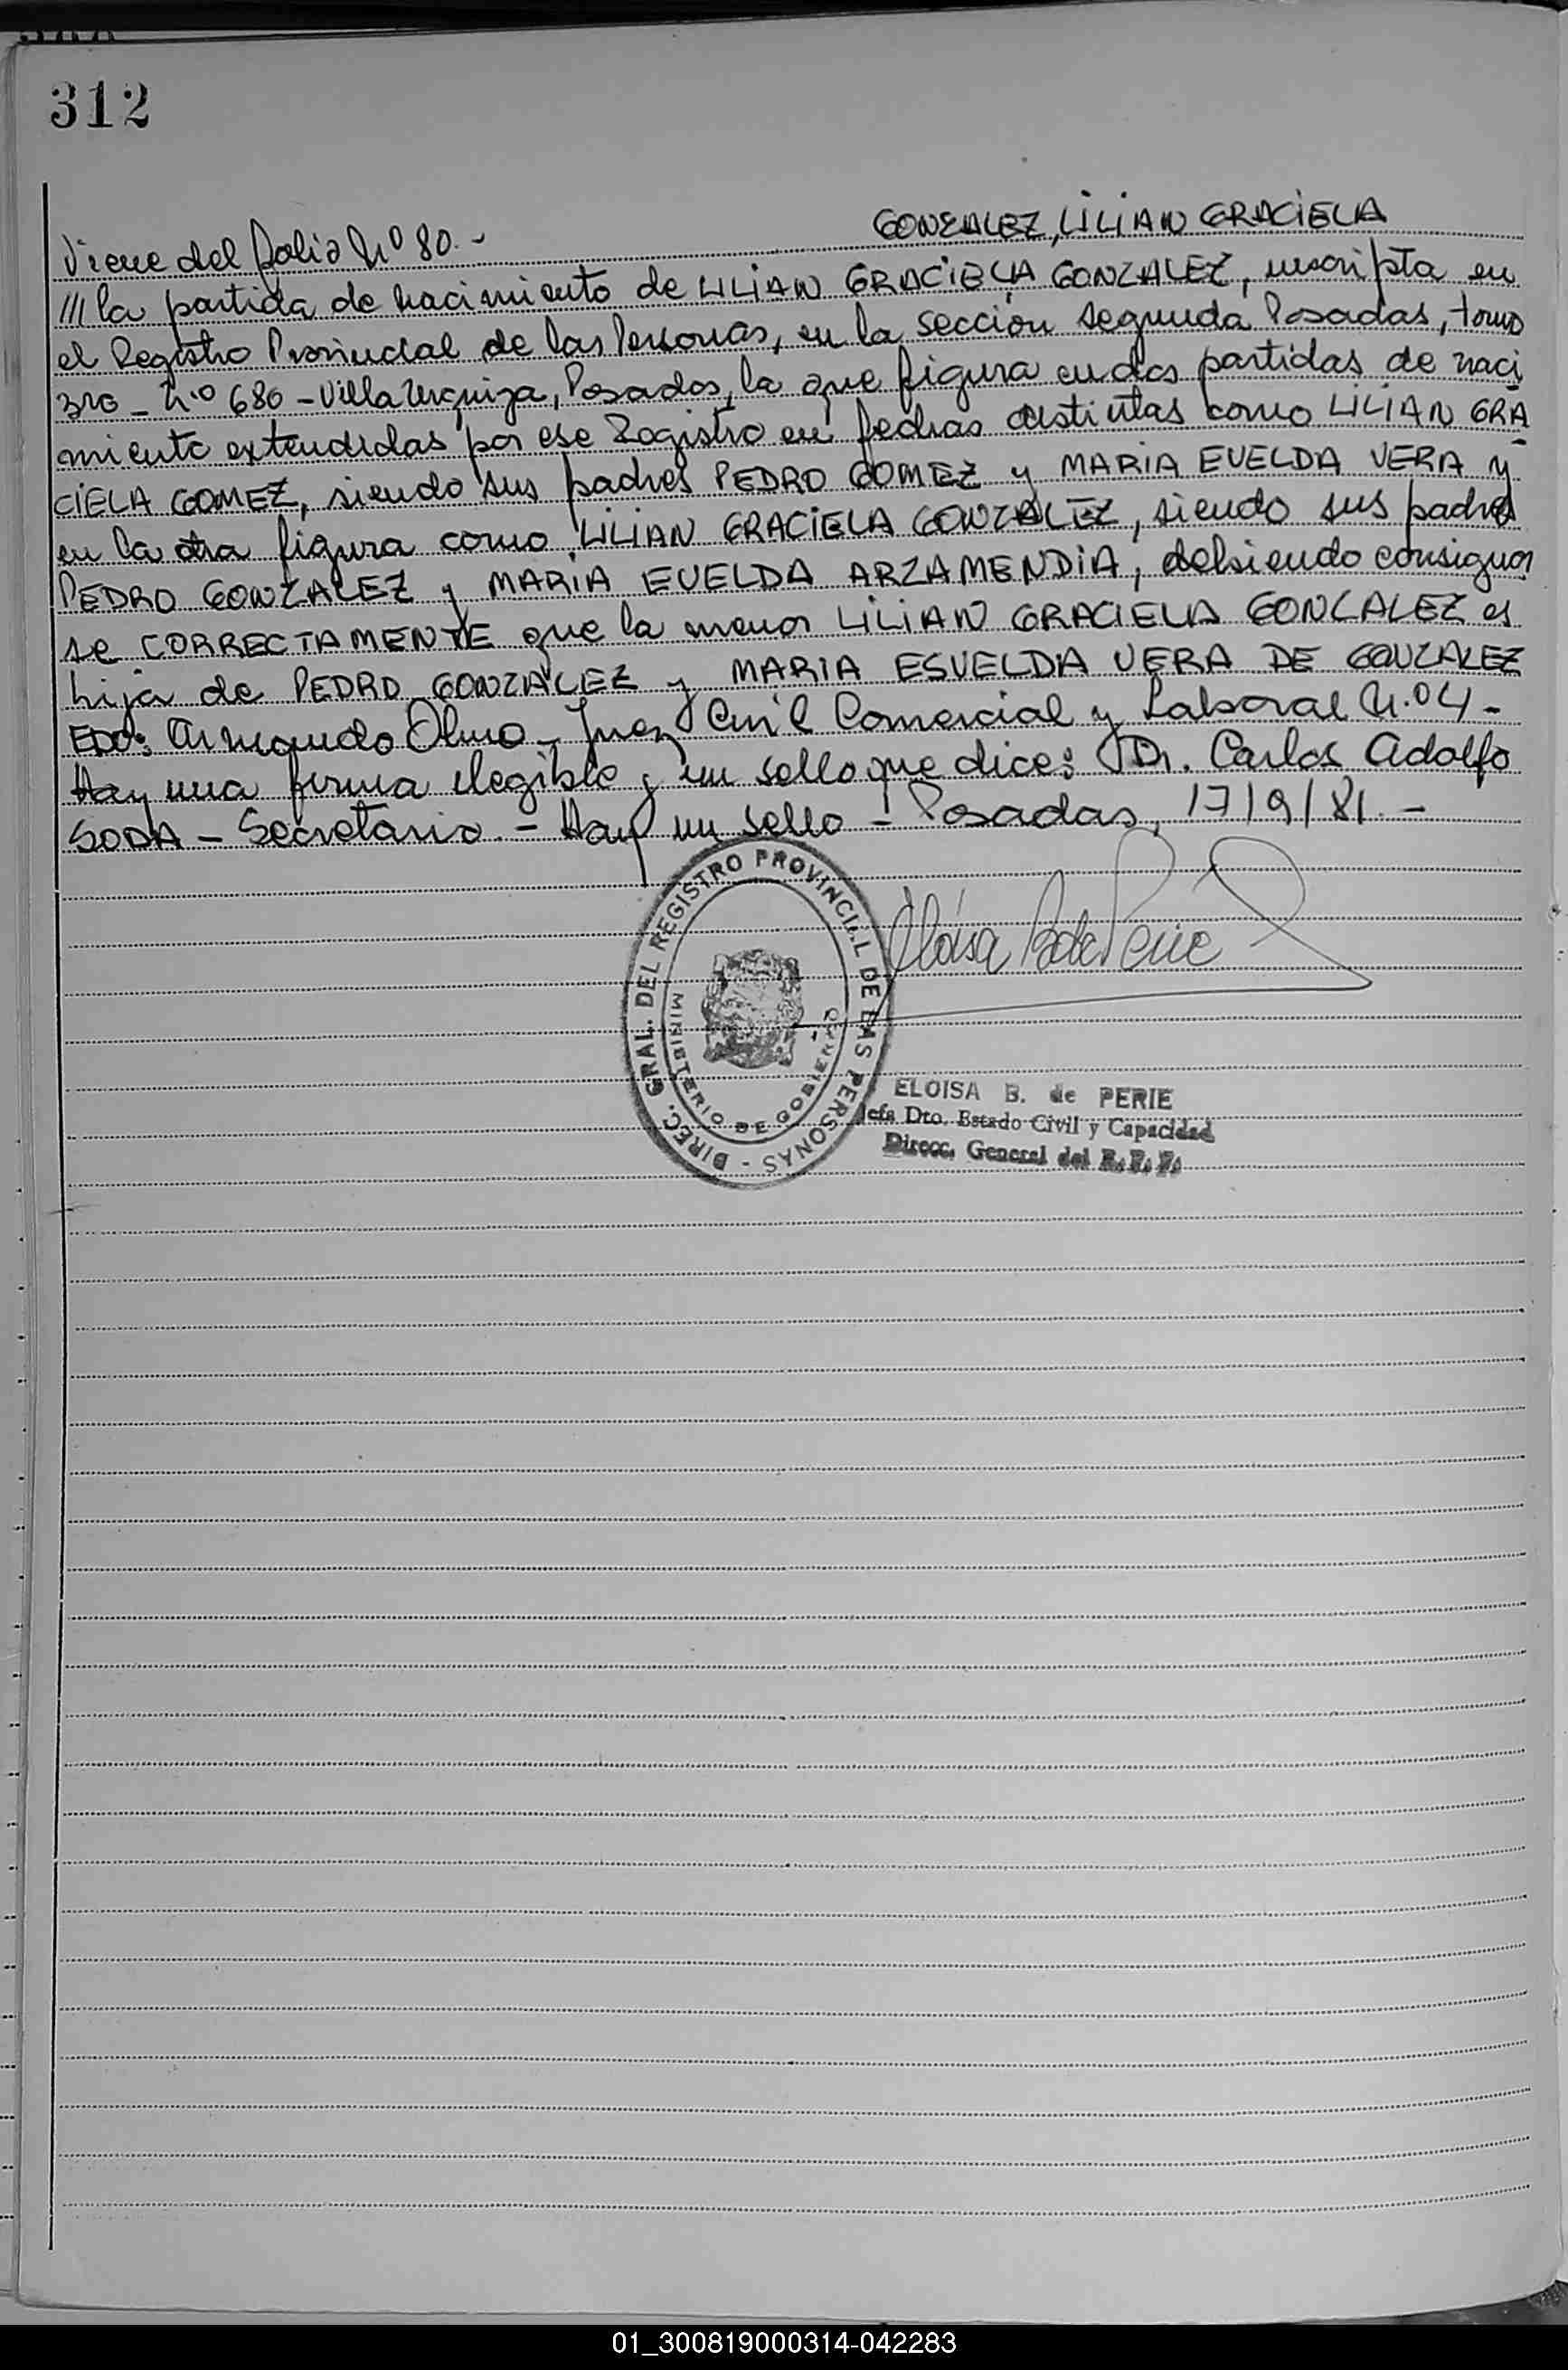 312
GONZALEZ, LILIAN GRACIELA
Viene del folio Nº 80.-
/// la partida de nacimiento de LILIAN GRACIELA GONZALEZ, inscripta en
el Registro Provincial de las Personas, en la sección segunda Posadas, tomo
3ro - Nº 680 - Villa Urquiza, Posadas, la que figura en dos partidas de naci
miento extendidas por ese Registro en fechas distintas como LILIAN GRA
CIELA GOMEZ, siendo sus padres PEDRO GOMEZ y MARIA EVELDA VERA y
en la otra figura como LILIAN GRACIELA GONZALEZ, siendo sus padres
PEDRO GONZALEZ y MARIA EVELDA ARZAMENDIA, debiendo consignar
se CORRECTAMENTE que la menor LILIAN GRACIELA GONZALEZ es
hija de PEDRO GONZALEZ y MARIA ESVELDA VERA DE GONZALEZ
FDO: Armando Olmo - Juez Civil Comercial y Laboral N.º 4 -
Hay una firma ilegible y un sello que dice: Dr. Carlos Adolfo
SODA - Secretario. - Hay un sello - Posadas, 17/9/81. -
DIREC. GRAL. DEL REGISTRO PROVINCIAL DE LAS PERSONAS -
MINISTERIO DE GOBIERNO
Eloisa B de Perie
ELOISA B. de PERIE
Jefa Dto. Estado Civil y Capacidad
Direcc. General del R. P. P.
01_300819000314-042283